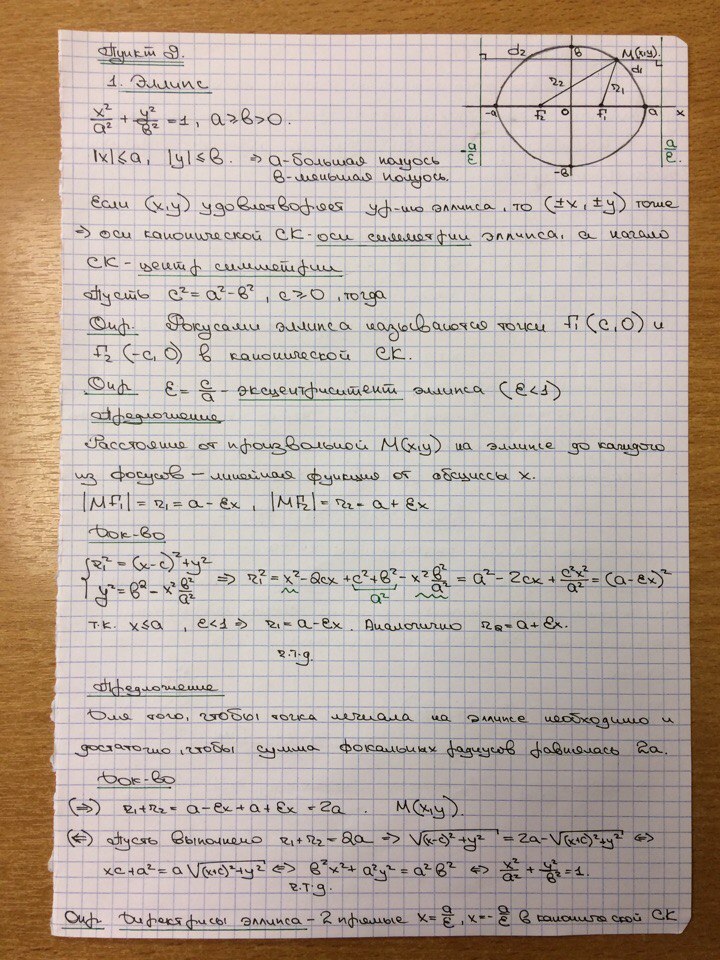 Пункт 9.
1. Эллипс
x²/a² + y²/b² = 1, a ≥ b > 0.
|x| ≤ a, |y| ≤ b. ⇒ a - большая полуось
b - меньшая полуось.
d₂ b M(x,y).
d₁
r₂ r₁
-a F₂ 0 F₁ a x
-a/ε a/ε
-b
Если (x,y) удовлетворяет ур-ию эллипса, то (±x, ±y) тоже
⇒ оси канонической СК - оси симметрии эллипса, а начало
СК - центр симметрии
Пусть c² = a² - b², c ≥ 0, тогда
Опр. Фокусами эллипса называются точки F₁ (c, 0) и
F₂ (-c, 0) в канонической СК.
Опр ε = c/a - эксцентриситет эллипса (ε < 1)
Предложение
Расстояние от произвольной M(x,y) на эллипсе до каждого
из фокусов – линейная функция от абсциссы x.
|MF₁| = r₁ = a - εx, |MF₂| = r₂ = a + εx
Док-во
{ r₁² = (x-c)² + y²
y² = b² - x² b²/a² ⇒ r₁² = x² - 2cx + c² + b² - x² b²/a² = a² - 2cx + c²x²/a² = (a - εx)²
a²
т.к. x ≤ a, ε < 1 ⇒ r₁ = a - εx. Аналогично r₂ = a + εx.
ч.т.д.
Предложение
Для того, чтобы точка лежала на эллипсе необходимо и
достаточно, чтобы сумма фокальных радиусов равнялась 2a.
Док-во
(⇒) r₁ + r₂ = a - εx + a + εx = 2a. M(x,y).
(⇐) Пусть выполнено r₁ + r₂ = 2a ⇒ √(x-c)² + y² = 2a - √(x+c)² + y² ⇔
xc + a² = a √(x+c)² + y² ⇔ b²x² + a²y² = a²b² ⇔ x²/a² + y²/b² = 1.
ч.т.д.
Опр Директрисы эллипса - 2 прямые x = a/ε, x = -a/ε в канонической СК